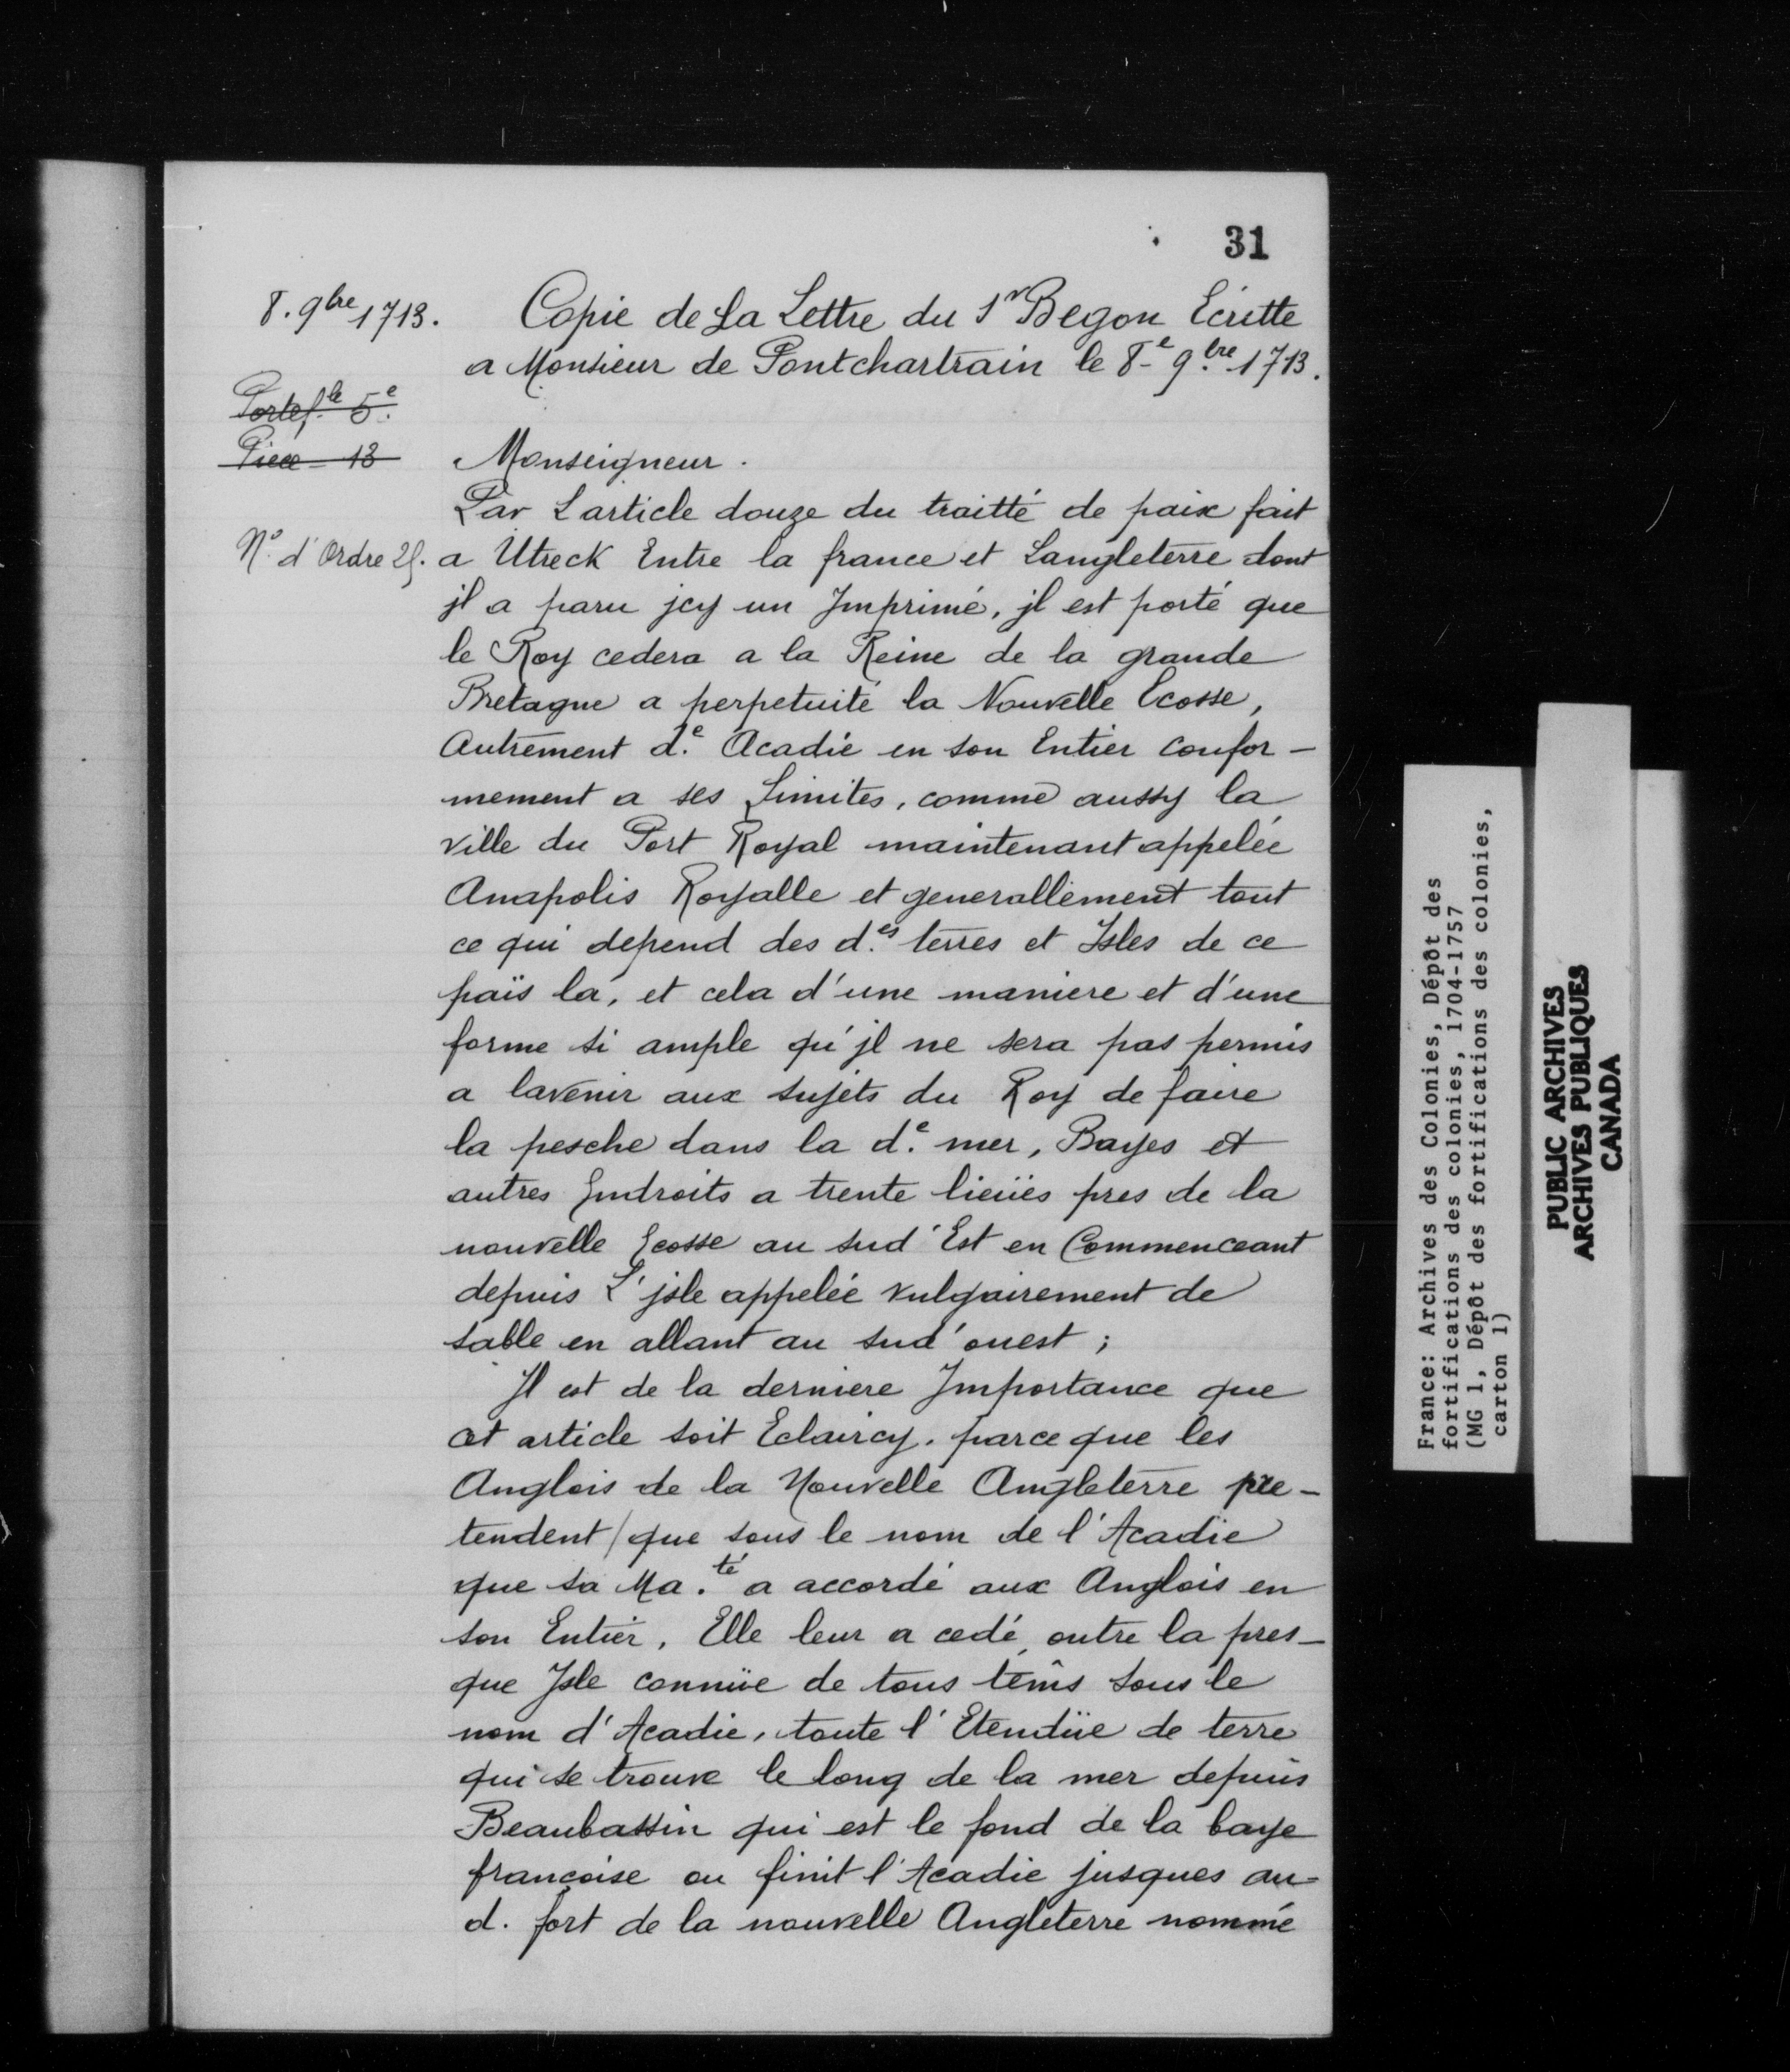 31
8. 9bre 1713.
Copie de La Lettre du Sr Begon Ecritte
a Monsieur de Pontchartrain le 8e 9bre 1713.
Portef.le 5e.
Piece 13
Monseigneur.
Par Larticle douze du traitté de paix fait
N.o d'Ordre 25.
a Utreck Entre la france et Langleterre dont
jl a paru jcy un Jmprimé, jl est porté que
le Roy cedera a la Reine de la grande
Bretagne a perpetuité la Nouvelle Ecosse,
Autrement d.e Acadie en son Entier confor-
mement a ses Limites, comme aussy la
ville du Port Royal maintenant appelée
Anapolis Royalle et generallement tout
ce qui depend des d.es terres et Isles de ce
païs la, et cela d'une maniere et d'une
forme si ample qu'jl ne sera pas permis
a lavenir aux sujets du Roy de faire
la pesche dans la d.e mer, Bayes et
autres Endroits a trente lieües pres de la
nouvelle Ecosse au sud'Est en Commenceant
depuis L'jsle appelée vulgairement de
sable en allant au sud'ouest;
Jl est de la derniere Jmportance que
cet article soit Eclaircy, parce que les
Anglois de la Nouvelle Angleterre pre-
tendent que sous le nom de l'Acadie
que sa Ma.té a accordé aux Anglois en
son Entier, Elle leur a cedé, outre la pres-
que Jsle connüe de tous têms sous le
nom d'Acadie, toute l'Etendüe de terre
qui se trouve le long de la mer depuis
Beaubassin qui est le fond de la baye
françoise ou finit l'Acadie jusques au-
d. fort de la nouvelle Angleterre nommé
France: Archives des Colonies, Dépôt des
fortifications des colonies, 1704-1757
(MG 1, Dépôt des fortifications des colonies,
carton 1)
PUBLIC ARCHIVES
ARCHIVES PUBLIQUES
CANADA